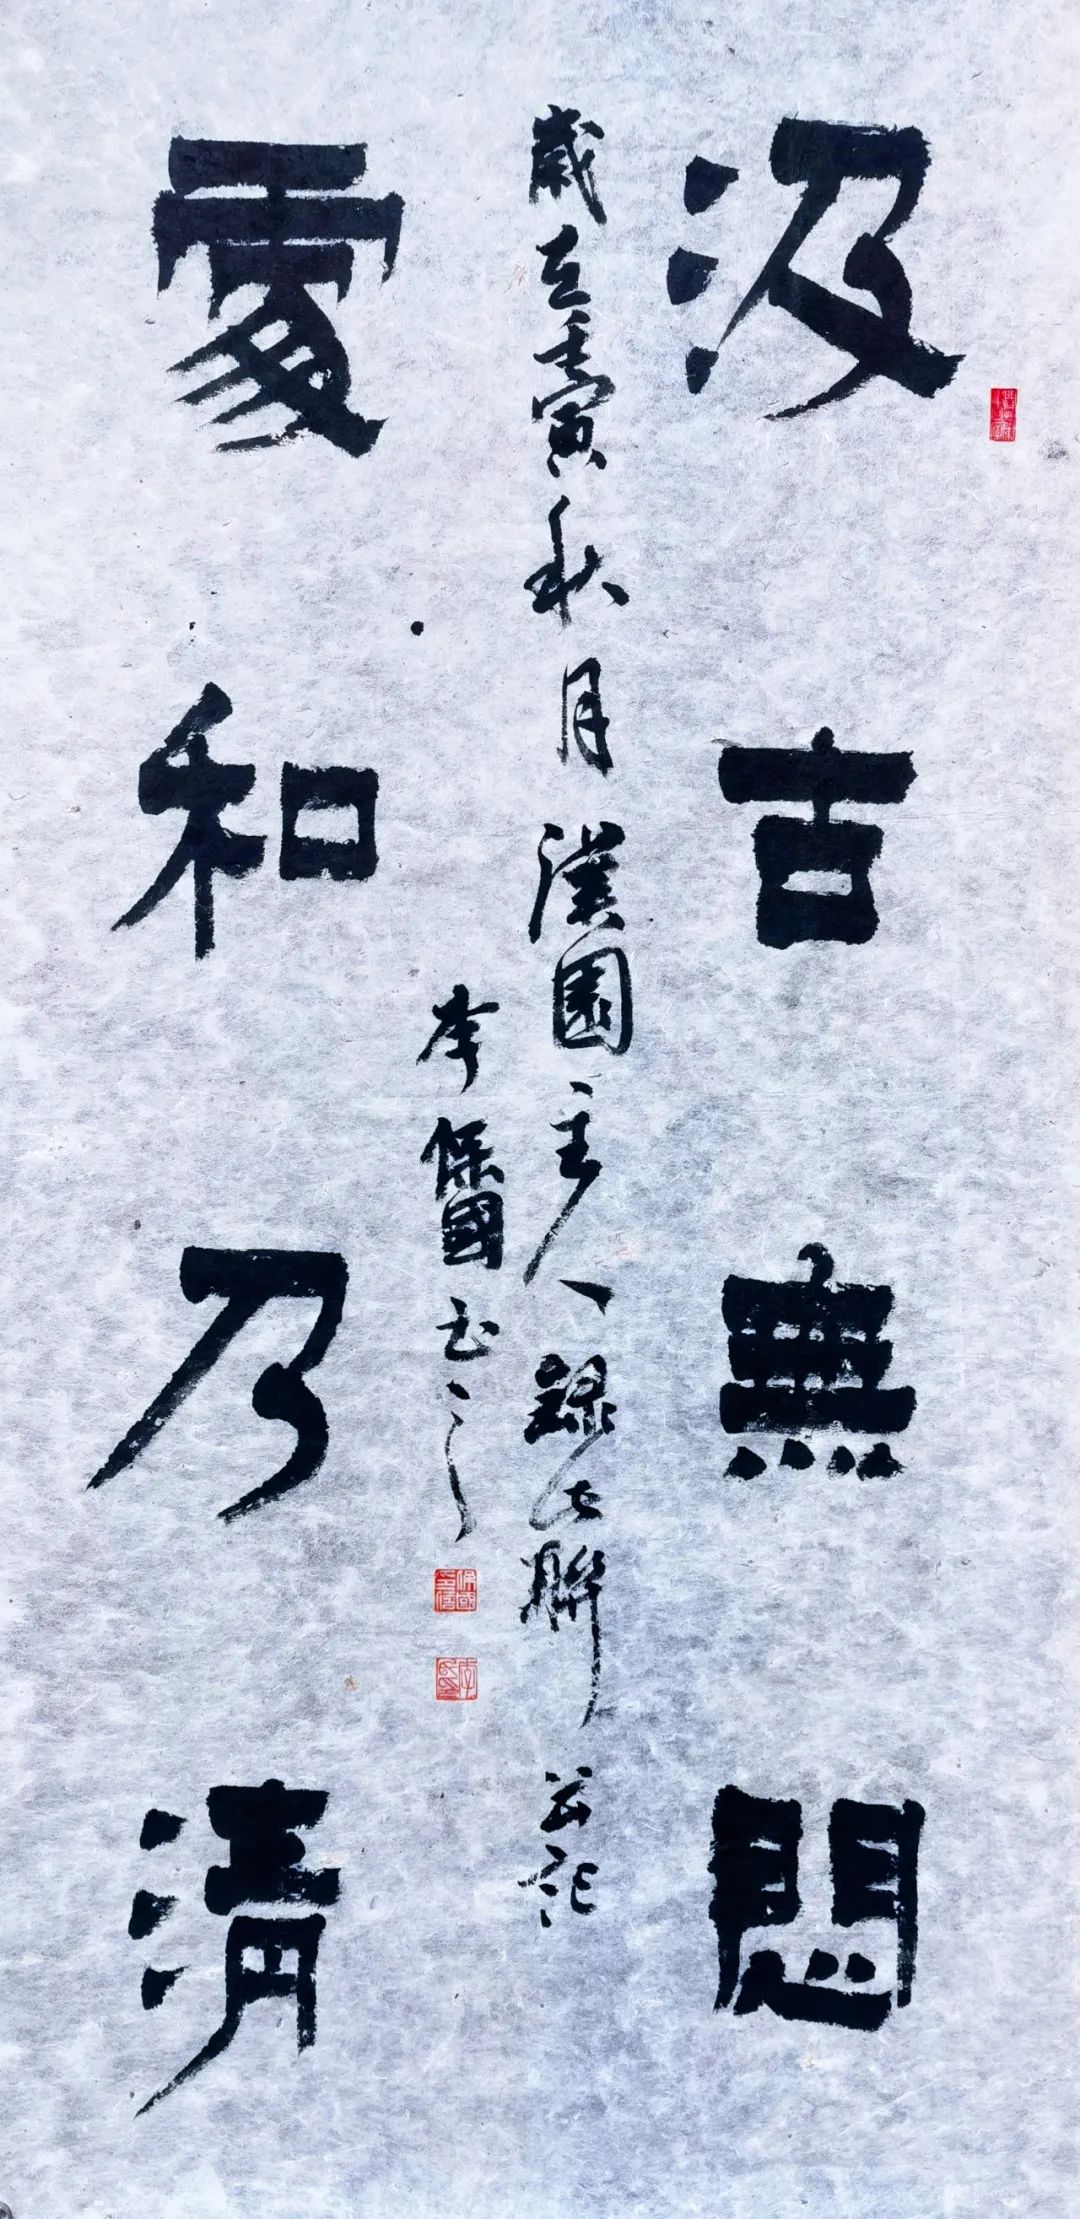 汲古無悶
歲在壬寅秋月漢園主人錄此聯並記
李保國書之
處和乃清